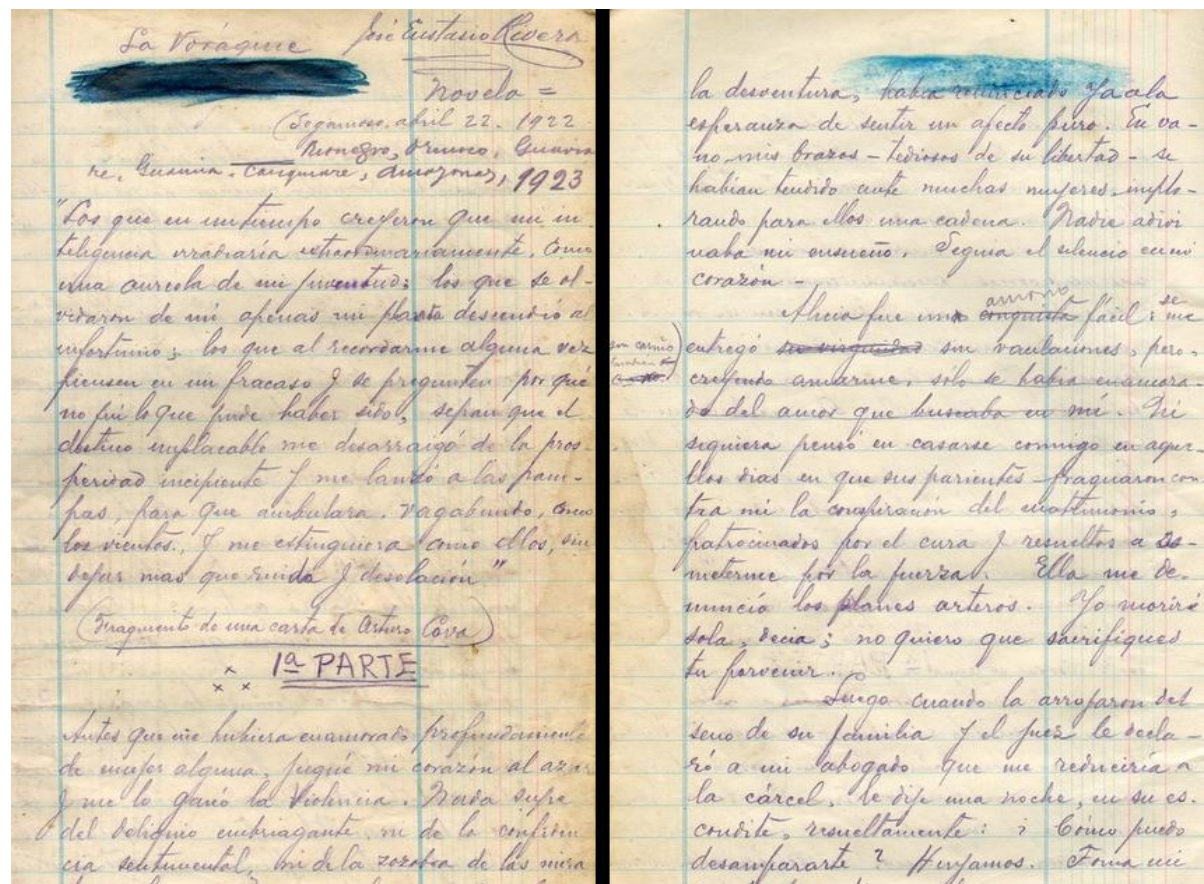 La Vorágine José Eustasio Rivera
Novela =
(Sogamoso, abril 22. 1922
Rionegro, Orinoco, Guavia
re, Guainia, Casiquiare, Amazonas, 1923
"Los que en un tiempo creyeron que mi in
teligencia irradiaría extraordinariamente, como
una aureola de mi juventud; los que se ol-
vidaron de mi apenas mi planta descendió al
infortunio; los que al recordarme alguna vez
piensen en mi fracaso y se pregunten por qué
no fuí lo que pude haber sido, sepan que el
destino implacable me desarraigó de la pros-
peridad incipiente y me lanzó a las pam-
pas, para que ambulara, vagabundo, como
los vientos, y me extinguiera como ellos, sin
dejar mas que ruido y desolación"
(Fragmento de una carta de Arturo Cova)
1ª PARTE
Antes que me hubiera enamorado profundamente
de mujer alguna, jugué mi corazón al azar
y me lo ganó la Violencia. Nada supe
del deliquio embriagante, ni de la confiden
cia sentimental, ni de la zozobra de las mira
la desventura, había renunciado ya a la
esperanza de sentir un afecto puro. En va-
no mis brazos - tediosos de su libertad - se
habían tendido ante muchas mujeres, implo-
rando para ellos una cadena. Nadie adivi
naba mi ensueño. Seguia el silencio en mi
corazón -
Alicia fue un conquista amorío fácil: se me
entregó su virginidad sin vacilaciones, pero,
con cariño
creyendo amarme, sólo se había enamora
do del amor que buscaba en mí. Ni
siquiera pensó en casarse conmigo en aque-
llos dias en que sus parientes fraguaron con
tra mi la conspiración del matrimonio,
patrocinados por el cura y resueltos a so-
meterme por la fuerza. Ella me de-
nunció los planes arteros. Yo moriré
sola, decia; no quiero que sacrifiques
tu porvenir.
Luego cuando la arrojaron del
seno de su familia y el juez le decla-
ró a mi abogado que me reduciría a
la cárcel, le dije una noche, en su es-
condite, resueltamente: ¿Cómo puedo
desampararte? Huyamos. Toma mi